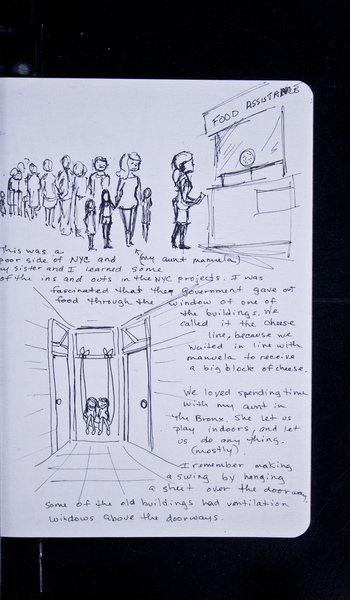 FOOD ASSISTANCE
This was a
poor side of NYC and (my aunt manuela)
my sister and I learned some
of the ins and outs in the NYC projects. I was
fascinated that the government gave out
food through the window of one of
the buildings. We
called it the cheese
line, because we
waited in line with
manuela to receive
a big block of cheese.
We loved spending time
with my aunt in
the Bronx. She let us
play indoors, and let
us do any thing.
(mostly).
I remember making
a swing by hanging
a sheet over the doorway
Some of the old buildings had ventilation
windows above the doorways.